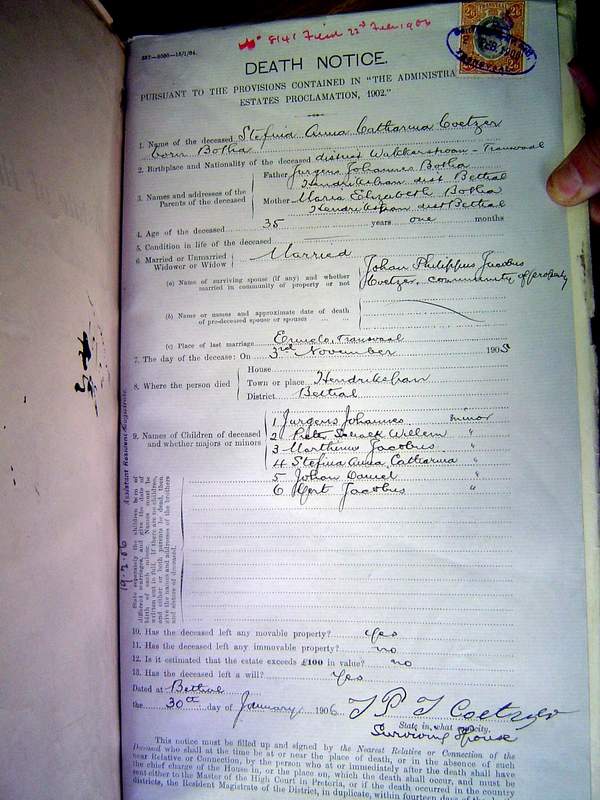 8141 Filed 22nd Febr 1906
DEATH NOTICE.
PURSUANT TO THE PROVISIONS CONTAINED IN "THE ADMINISTRA
ESTATES PROCLAMATION, 1902."
1. Name of the deceased Stefina Anna Catharina Coetzer
born Botha
2. Birthplace and Nationality of the deceased district Wakkerstroom - Transvaal
3. Names and addresses of the Parents of the deceased
Father Jurgens Johannes Botha
dist Bethal
Mother Maria Elizabeth Botha
dist Bethal
4. Age of the deceased 35 years one months
5. Condition in life of the deceased
6. Married or Unmarried Married
Widower or Widow
(a) Name of surviving spouse (if any) and whether married in community of property or not
Johan Philippus Jacobus
Coetzer, community of property
(b) Name or names and approximate date of death of pre-deceased spouse or spouses
(c) Place of last marriage Ermelo, Transvaal
7. The day of the decease: On 3rd November 1905
8. Where the person died
House
Town or place
District Bethal
9. Names of Children of deceased and whether majors or minors
1 Jurgens Johannes minor
2 Pieter Willem "
3 Marthinus Jacobus "
4 Stefina Anna Catharina "
5 Johan Daniel "
6 Jacobus "
State separately the children born of different marriages, and give the date of birth of each minor. Names must be written out in full. If there are no children, and either or both parents be dead, then give the names and addresses of the brothers and sisters of deceased.
19-2-06 Assistant Resident Magistrate
10. Has the deceased left any movable property? yes
11. Has the deceased left any immovable property? no
12. Is it estimated that the estate exceeds £100 in value? no
13. Has the deceased left a will? Yes
Dated at Bethal
the 30th day of January 1906 J P J Coetzer
State in what capacity.
Surviving Spouse
This notice must be filled up and signed by the Nearest Relative or Connection of the
Deceased who shall at the time be at or near the place of death, or in the absence of such
near Relative or Connection, by the person who at or immediately after the death shall have
the chief charge of the House in, or the place on, which the death shall occur, and must be
sent either to the Master of the High Court in Pretoria, or if the death occurred in the country
districts, the Resident Magistrate of the District, in duplicate, within fourteen days of the